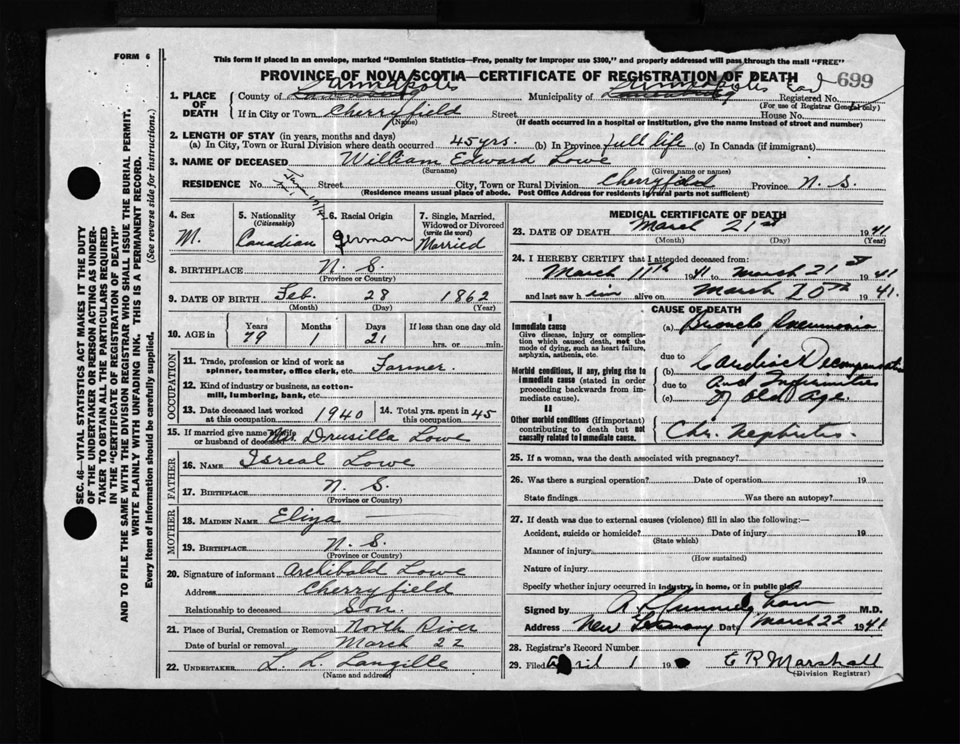 FORM 6
This form if placed in an envelope, marked "Dominion Statistics—Free, penalty for improper use $300," and properly addressed will pass through the mail "FREE"
PROVINCE OF NOVA SCOTIA—CERTIFICATE OF REGISTRATION OF DEATH
699
Annapolis Annapolis
1. PLACE OF DEATH County of Lunenburg Municipality of Lunenburg Registered No.
(For use of Registrar General only)
If in City or Town Cherryfield Street House No.
(Name) (If death occurred in a hospital or institution, give the name instead of street and number)
2. LENGTH OF STAY (in years, months and days)
(a) In City, Town or Rural Division where death occurred 45 yrs. (b) In Province full life (c) In Canada (if immigrant)
3. NAME OF DECEASED William Edward Lowe
(Surname) (Given name or names)
RESIDENCE No. Street City, Town or Rural Division Cherryfield Province N. S.
(Residence means usual place of abode. Post Office Address for residents in rural parts not sufficient)
4. Sex M.
5. Nationality (Citizenship) Canadian
6. Racial Origin German
7. Single, Married, Widowed or Divorced (write the word) Married
8. BIRTHPLACE N. S.
(Province or Country)
9. DATE OF BIRTH Feb. 28 1862
(Month) (Day) (Year)
10. AGE in Years 79 Months 1 Days 21 If less than one day old hrs. or min.
OCCUPATION
11. Trade, profession or kind of work as spinner, teamster, office clerk, etc. Farmer.
12. Kind of industry or business, as cotton-mill, lumbering, bank, etc.
13. Date deceased last worked at this occupation 1940
14. Total yrs. spent in 45
15. If married give name of wife or husband of deceased Mrs. Drusilla Lowe
FATHER
16. NAME Isreal Lowe
17. BIRTHPLACE N. S.
(Province or Country)
MOTHER
18. MAIDEN NAME Eliza —
19. BIRTHPLACE N. S.
(Province or Country)
20. Signature of informant Archibald Lowe
Address Cherryfield
Relationship to deceased Son.
21. Place of Burial, Cremation or Removal North River
Date of burial or removal March 22
22. UNDERTAKER L. L. Langille
(Name and address)
MEDICAL CERTIFICATE OF DEATH
23. DATE OF DEATH March 21st 1941
(Month) (Day) (Year)
24. I HEREBY CERTIFY that I attended deceased from:
March 11th 1941 to March 21st 1941
and last saw him alive on March 20th 1941.
CAUSE OF DEATH
I
Immediate cause
Give disease, injury or complication which caused death, not the mode of dying, such as heart failure, asphyxia, asthenia, etc.
(a) Broncho Pneumonia
due to
Morbid conditions, if any, giving rise to immediate cause (stated in order proceeding backwards from immediate cause).
(b) Cardiac Decompensation
due to and Infirmities
(c) of old Age.
II
Other morbid conditions (if important) contributing to death but not causally related to immediate cause.
Chr. Nephritis.
25. If a woman, was the death associated with pregnancy?
26. Was there a surgical operation? Date of operation 19
State findings Was there an autopsy?
27. If death was due to external causes (violence) fill in also the following:—
Accident, suicide or homicide? Date of injury 19
(State which)
Manner of injury
(How sustained)
Nature of injury
Specify whether injury occurred in industry, in home, or in public place
Signed by M.D.
Address New Germany Date March 22 1941
28. Registrar's Record Number
29. Filed April 1 19 E R Marshall
(Division Registrar)
SEC. 46—VITAL STATISTICS ACT MAKES IT THE DUTY
OF THE UNDERTAKER OR PERSON ACTING AS UNDER-
TAKER TO OBTAIN ALL THE PARTICULARS REQUIRED
IN THE "CERTIFICATE OF REGISTRATION OF DEATH"
AND TO FILE THE SAME WITH THE DIVISION REGISTRAR WHO SHALL ISSUE THE BURIAL PERMIT.
WRITE PLAINLY WITH UNFADING INK. THIS IS A PERMANENT RECORD.
Every item of Information should be carefully supplied. (See reverse side for instructions.)